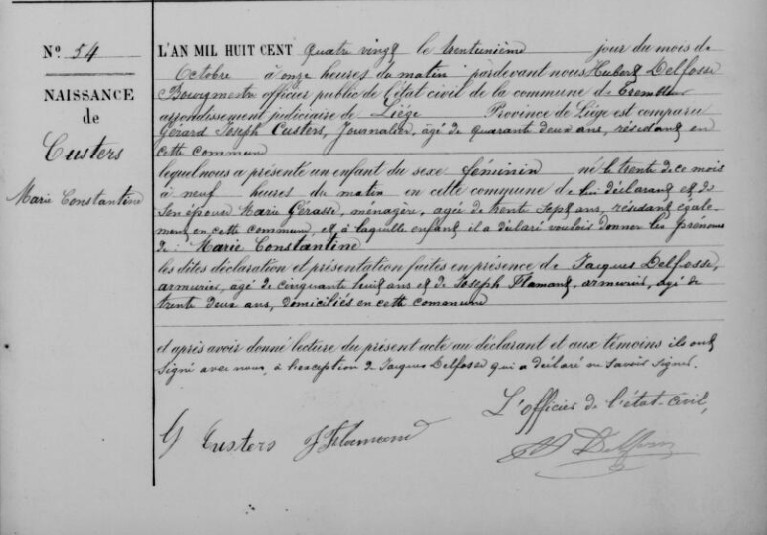 N° 54
NAISSANCE
de
Custers
Marie Constantine
L'AN MIL HUIT CENT quatre vingt le trentunième jour du mois de
Octobre à onze heures du matin pardevant nous Hubert Delfosse
Bourgmestre officier public de l'état civil de la commune de Trembleur
arrondissement judiciaire de Liége Province de Liége est comparu
Gérard Joseph Custers, Journalier, âgé de quarante deux ans, résidant en
cette commune
lequel nous a présenté un enfant du sexe féminin né le trente de ce mois
à neuf heures du matin en cette commune de lui déclarant et de
son épouse Marie Gérasse, ménagère, agée de trente sept ans, résidant égale-
ment en cette commune, et à laquelle enfant il a déclaré vouloir donner les prénoms
de : Marie Constantine
les dites déclaration et présentation faites en présence de Jacques Delfosse,
armurier, agé de cinquante huit ans et de Joseph Flamant, armurier, agé de
trente deux ans, domiciliés en cette commune
et après avoir donné lecture du présent acte au déclarant et aux témoins ils ont
signé avec nous, à l'exception de Jacques Delfosse qui a déclaré ne savoir signer.
L'officier de l'état-civil,
G Custers J Flamand
H Delfosse